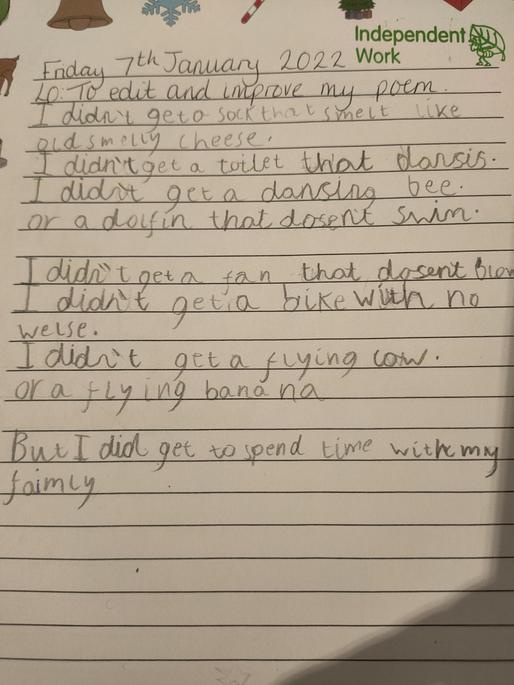 Independent
Work
Friday 7th January 2022
LO: To edit and improve my poem.
I didn't get a sock that smelt like
old smelly cheese.
I didn't get a toilet that dansis.
I didn't get a dansing bee.
or a dolfin that dosent swim.
I didn't get a fan that dosent blow
I didn't get a bike with no
welse.
I didn't get a flying cow.
or a flying banana
But I did get to spend time with my
faimly